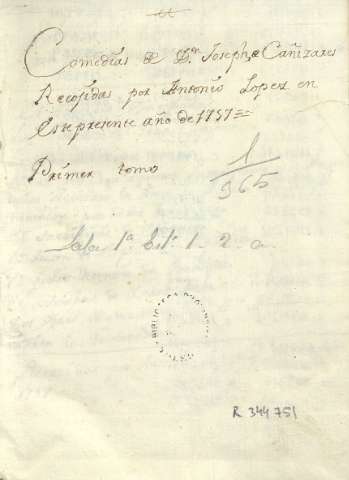 Comedias de Dn. Joseph, de Cañizares
Recojidas por Antonio Lopez en
Este presente año de 1757=
Primer tomo
1
965
1ª 1. 2. a.
BIBLIOTECA
R 344751